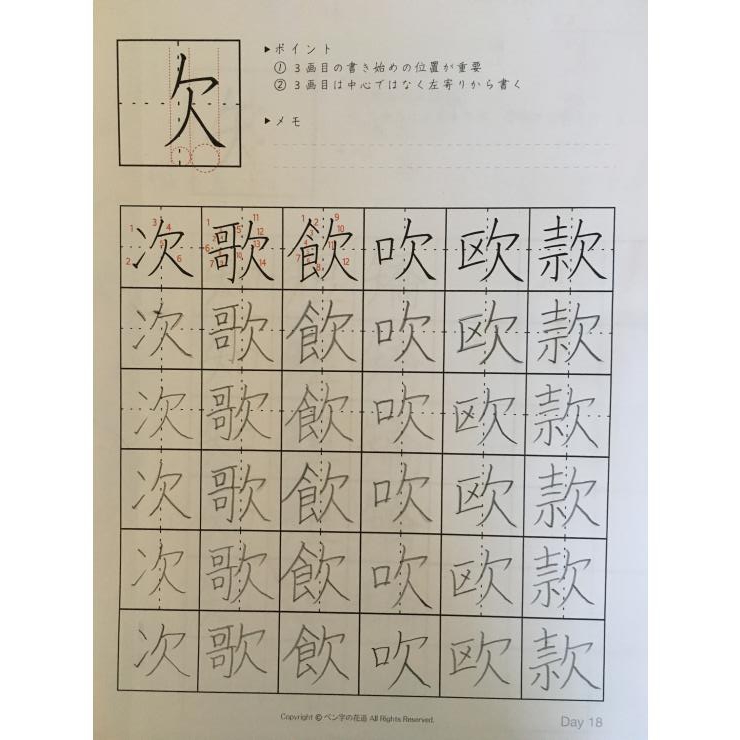 欠
▶ポイント
① 3画目の書き始めの位置が重要
② 3画目は中心ではなく左寄りから書く
▶メモ
次 歌 飲 吹 欧 款
次 歌 飲 吹 欧 款
次 歌 飲 吹 欧 款
次 歌 飲 吹 欧 款
次 歌 飲 吹 欧 款
次 歌 飲 吹 欧 款
Copyright © ペン字の花道 All Rights Reserved.
Day 18